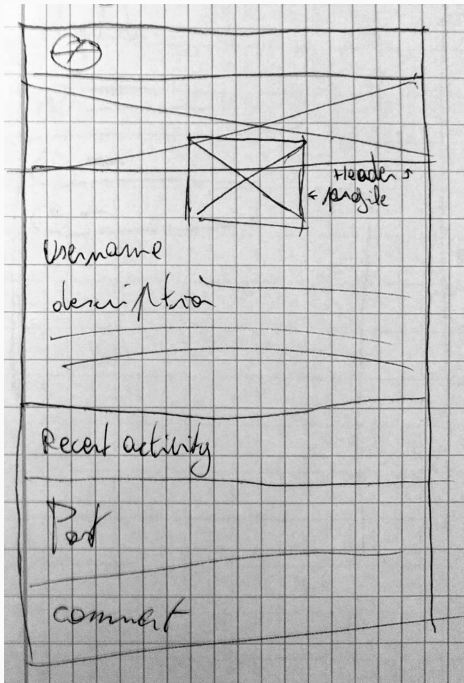 Header
profile
username
description
Recent activity
Post
comment